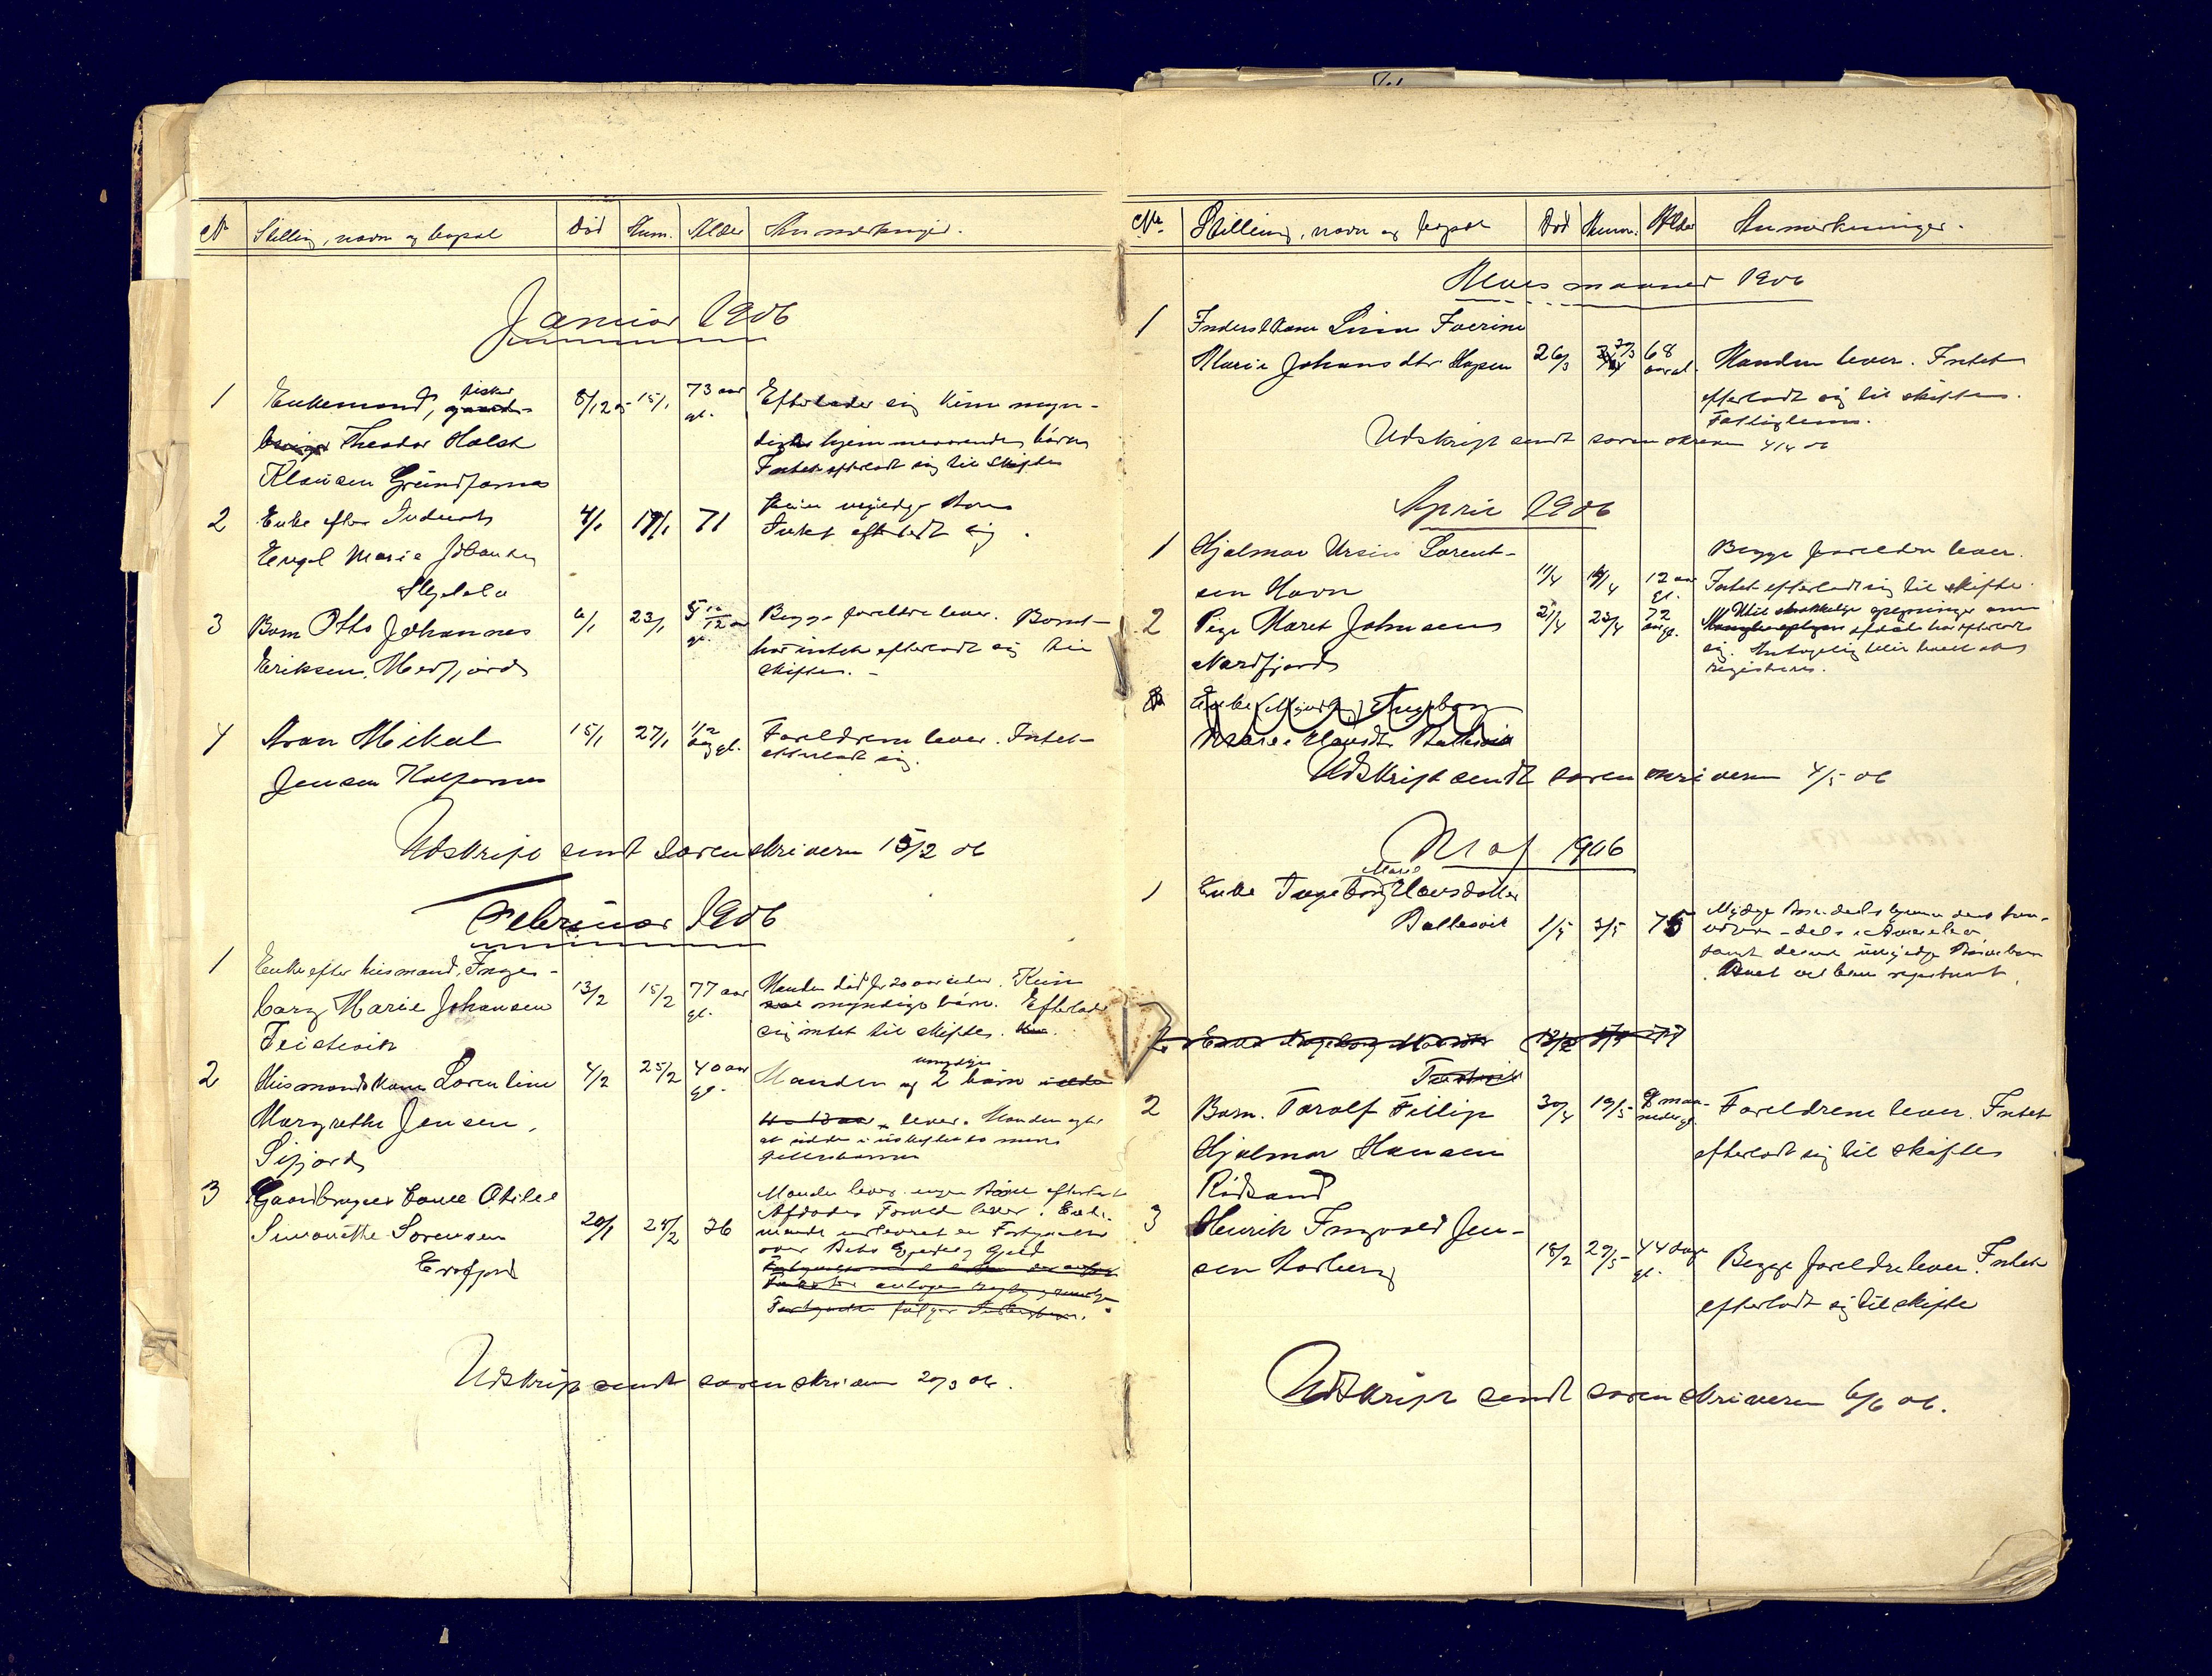 No Stilling, navn og bopæl Død Anm. Alder Anmærkninger.
Januar 1906
1 Enkemand, fisker 8/12 05 15/1 73 aar gl. Efterlader sig kun myn-
Theodor Holst dige hjemmeværende børn
Klausen Grundfarnes Intet efterladt sig til skifte
2 Enke efter Inderst 4/1 19/1 71 Kun myndige Børn
Engel Marie Johansen Intet efterladt sig.
Skjelelv
3 Barn Otto Johannes 6/1 23/1 5 10/12 aar gl. Begge forældre lever. Barnet
Eriksen, Medfjord har intet efterladt sig til
skifte. -
4 Aron Mikal 15/1 27/1 1/2 aar gl. Forældrene lever. Intet
Jensen Kalfarnes efterladt sig.
Udskrift sendt sorenskriveren 15/2 06
Februar 1906
1 Enke efter husmand, Inge-
borg Marie Johansen 13/2 15/2 77 aar gl. Manden død for 20 aar siden. Kun
Teistevik myndige børn. Efterlader
sig intet til skifte.
2 Husmandskone Lorentine 4/2 25/2 40 aar gl. Manden og 2 umyndige børn
Margrethe Jensen, lever. Manden agter
Sifjord at sidde i uskiftet bo med
fællesbarnene
3 Gaardbruger kone Otilie Manden lever. ingen Børn efterladt
Simonette Sørensen 20/1 25/2 36 Afdødes Forældre lever. Enke-
Ersfjord manden har leveret en Fortegnelse
over Boets Eiendele og Gjæld
Udskrift sendt sorenskriveren 20/3 06.
No. Stilling, navn og bopæl Død Anm. Alder Anmærkninger.
Mars maaned 1906
1 Inderstkone Sina Severine
Marie Johansdtr Hopen 26/3 27/3 68 aar gl. Manden lever. Intet
efterladt sig til skiftes.
Fattiglem.
Udskrift sendt sorenskriveren 4/4 06
April 1906
1 Hjalmar Ursin Lorent- Begge forældre lever.
sen Havn 11/4 12 aar gl. Intet efterladt sig til skifte.
2 Pige Maret Johnsen 21/4 23/4 72 aar gl.
Nordfjord sig. Antagelig blir boet at
registrere.
Enke Ingeborg
Marie Hansdtr Ballesvik
Udskrift sendt sorenskriveren 4/5 06
Maj 1906
1 Enke Ingeborg Marie Hansdatter
Ballesvik 1/5 3/5 75 Myndige Børn dels hjemme dels
dels i Amerika
samt desuden umyndige Børnebørn
Boet vil blive registreret.
2 Enke Ingeborg 13/2
Teistevik
2 Barn. Toralf Fillip 30/4 19/5 9 maa- neder gl. Forældrene lever. Intet
Hjalmar Hansen efterladt sig til skiftes
Rødsand
3 Henrik Ingvald Jen-
sen Torberg 18/2 29/5 44 dage gl. Begge forældre lever. Intet
efterladt sig til skifte
Udskrift sendt sorenskriveren 6/6 06.